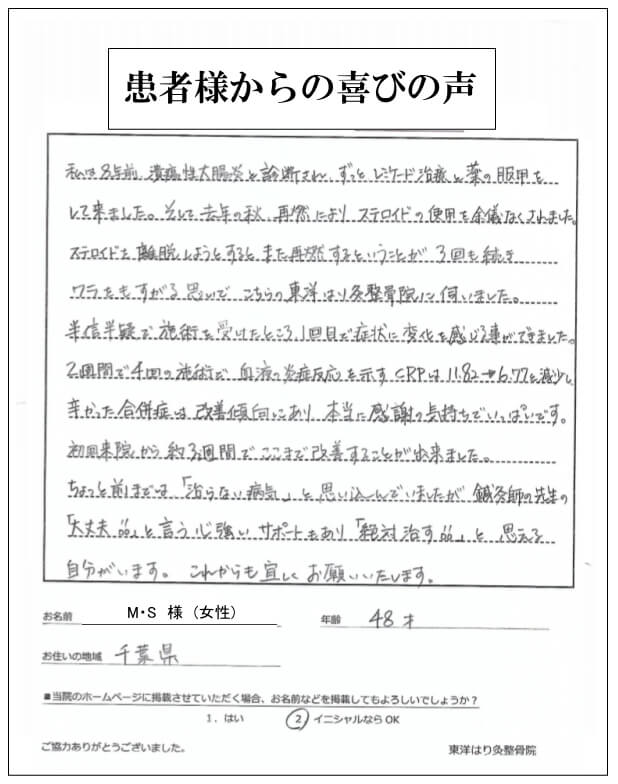 患者様からの喜びの声
私は8年前、潰瘍性大腸炎と診断され、ずっとレミケード治療と薬の服用を
して来ました。そして去年の秋、再燃によりステロイドの使用を余儀なくされました。
ステロイドを離脱しようとするとまた再燃するということが3回も続き
ワラをもすがる思いで、こちらの東洋はり灸整骨院に伺いました。
半信半疑で施術を受けたところ、1回目で症状に変化を感じる事ができました。
2週間で4回の施術で血液の炎症反応を示すCRPは11.82→6.77と減少し、
辛かった合併症は改善傾向にあり本当に感謝の気持ちでいっぱいです。
初回来院から約3週間でここまで改善することが出来ました。
ちょっと前までは「治らない病気」と思い込んでいましたが、鍼灸師の先生の
「大丈夫!!」と言う心強いサポートもあり「絶対治す!!」と思える
自分がいます。これからも宜しくお願いいたします。
お名前 M・S 様（女性） 年齢 48才
お住いの地域 千葉県
■当院のホームページに掲載させていただく場合、お名前などを掲載してもよろしいでしょうか？
1．はい 2 イニシャルなら OK
ご協力ありがとうございました。 東洋はり灸整骨院